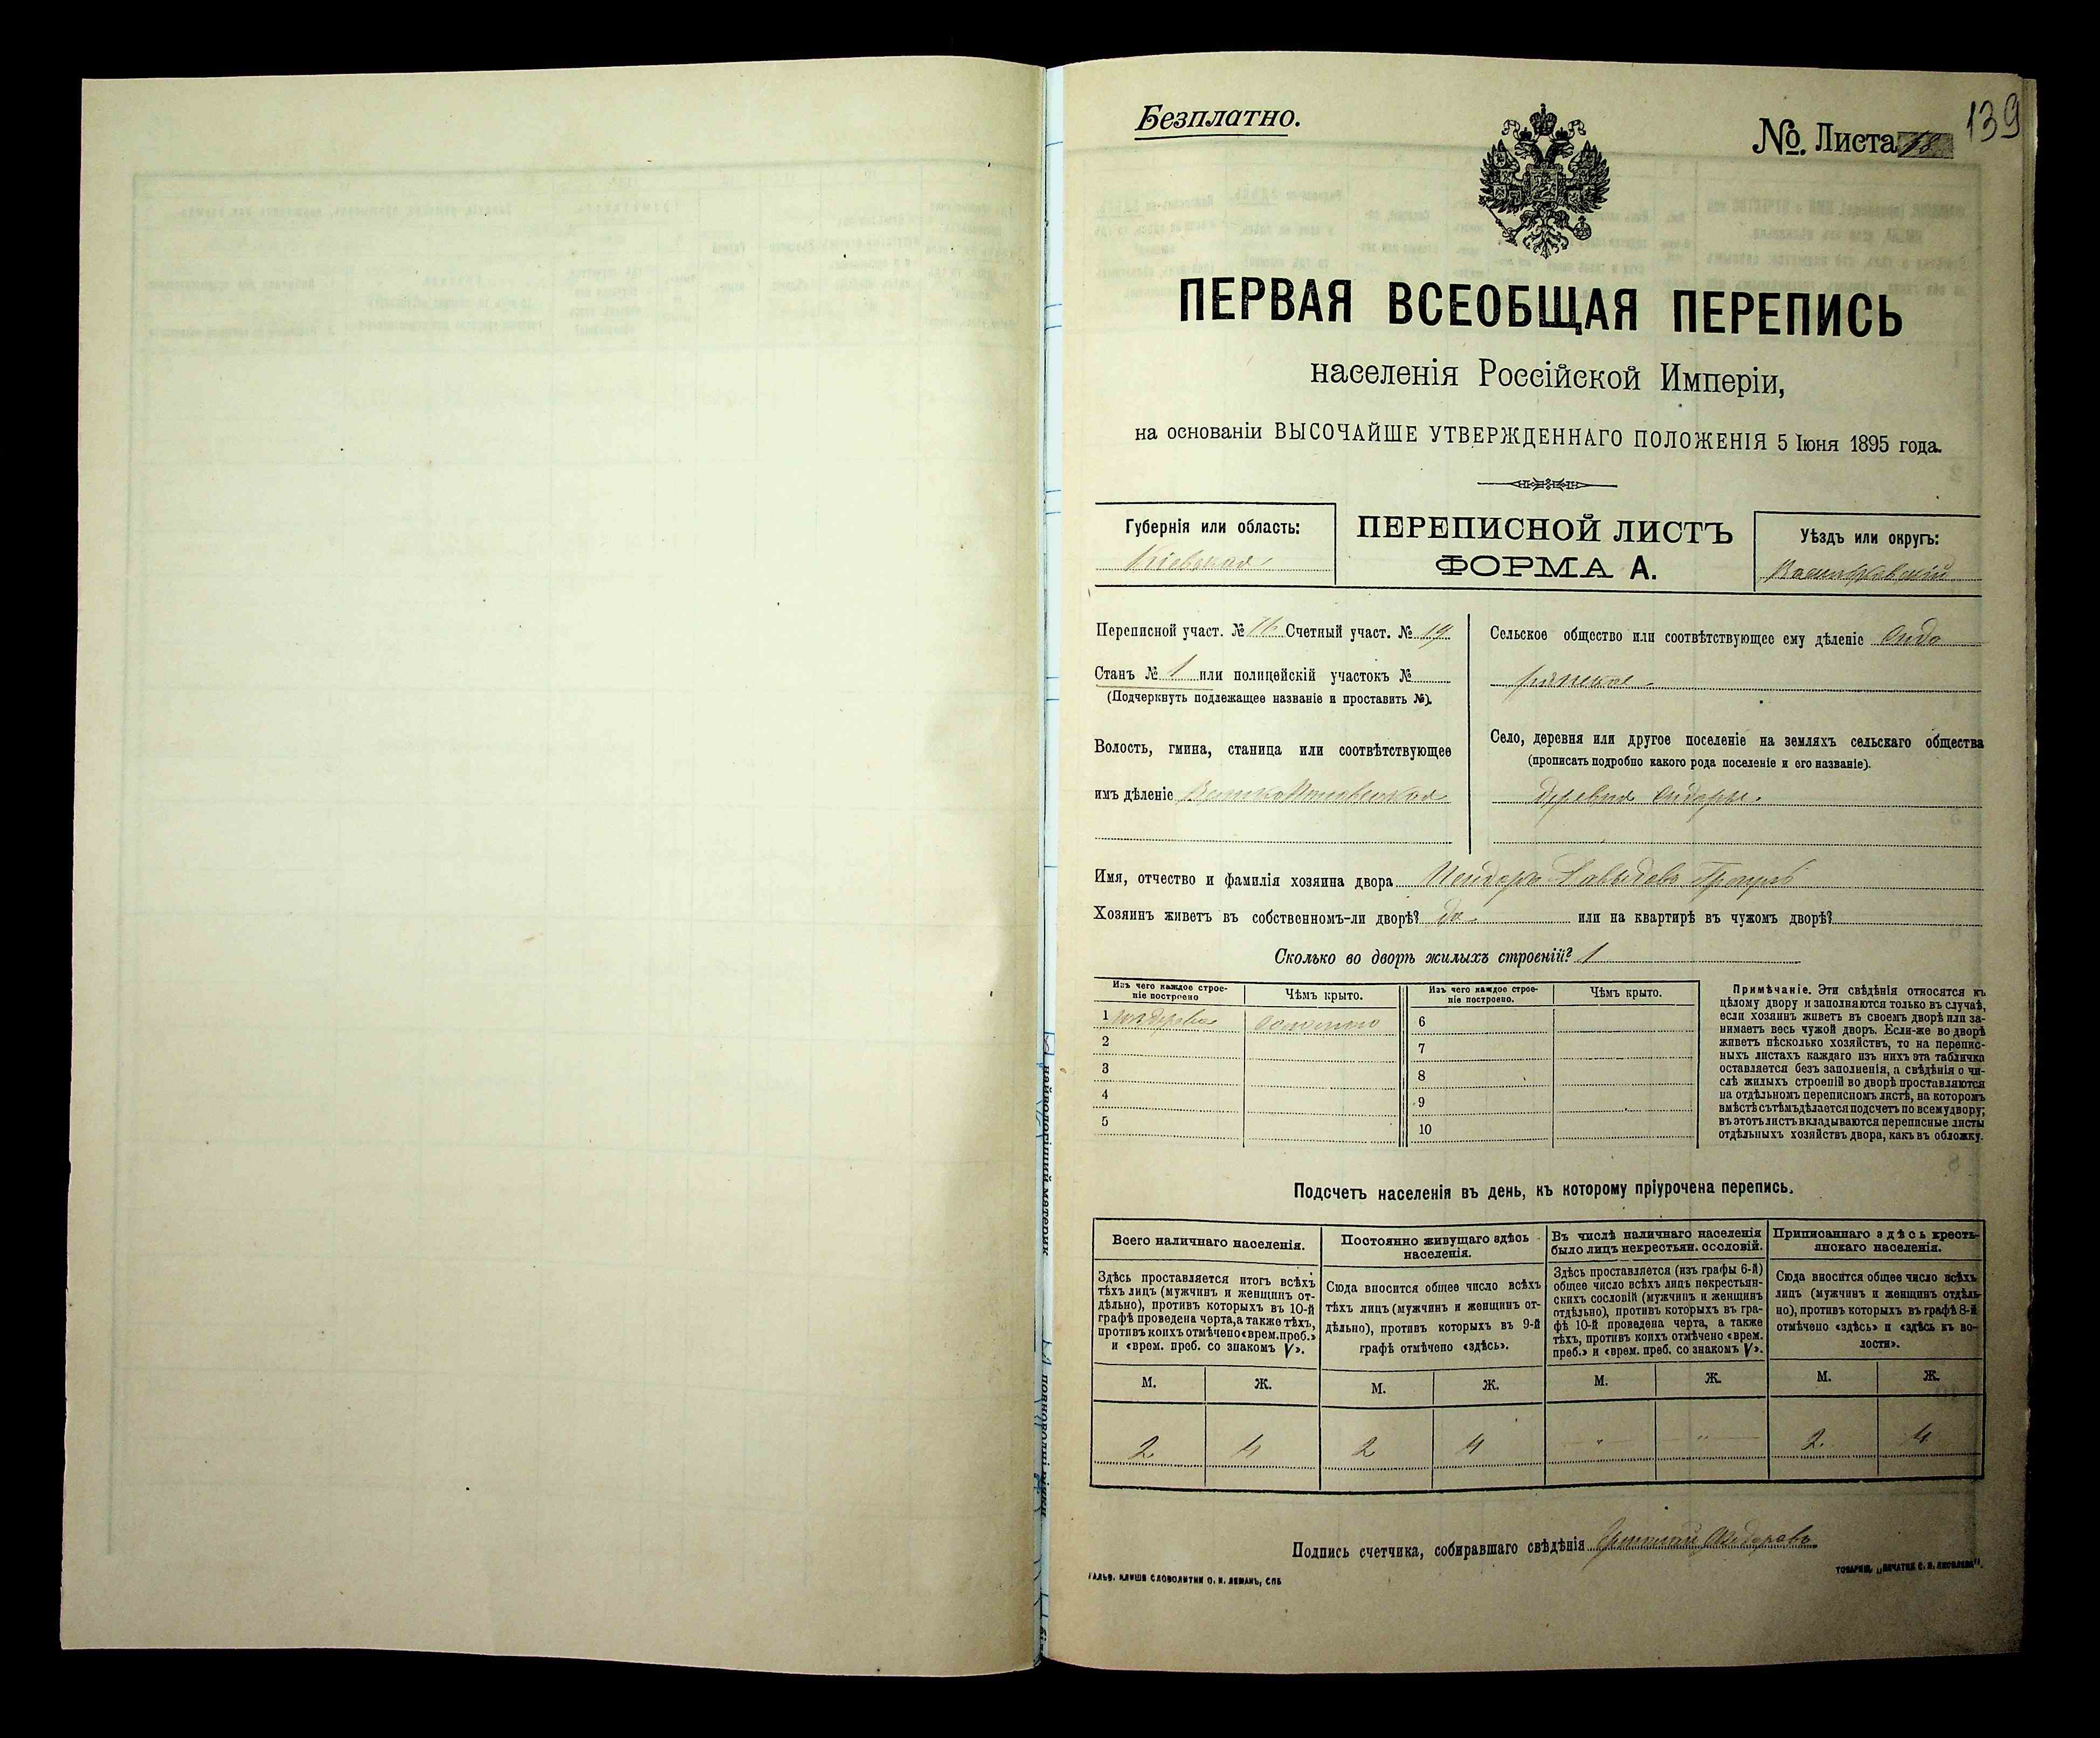 Безплатно.
№. Листа 18
139
ПЕРВАЯ ВСЕОБЩАЯ ПЕРЕПИСЬ
населенія Россійской Имперіи,
на основаніи ВЫСОЧАЙШЕ УТВЕРЖДЕННАГО ПОЛОЖЕНІЯ 5 Іюня 1895 года.
Губернія или область:
Кіевская
ПЕРЕПИСНОЙ ЛИСТЪ
ФОРМА А.
Уѣздъ или округъ:
Васильковскій
Переписной участ. № 16 Счетный участ. № 19
Станъ № 1 или полицейскій участокъ №
(Подчеркнуть подлежащее названіе и проставить №).
Волость, гмина, станица или соотвѣтствующее
имъ дѣленіе
Сельское общество или соотвѣтствующее ему дѣленіе Сидо
рянское
Село, деревня или другое поселеніе на земляхъ сельскаго общества
(прописать подробно какого рода поселеніе и его названіе).
деревня Сидоры
Имя, отчество и фамилія хозяина двора Исидоръ Давыдовъ
Хозяинъ живетъ въ собственномъ-ли дворѣ? да или на квартирѣ въ чужомъ дворѣ?
Сколько во дворѣ жилыхъ строеній? 1
Изъ чего каждое строе-
ніе построено
Чѣмъ крыто.
Изъ чего каждое строе-
ніе построено.
Чѣмъ крыто.
1 изъ дерева соломою
2
3
4
5
6
7
8
9
10
Примѣчаніе. Эти свѣдѣнія относятся къ
цѣлому двору и заполняются только въ случаѣ,
если хозяинъ живетъ въ своемъ дворѣ или за-
нимаетъ весь чужой дворъ. Если-же во дворѣ
живетъ нѣсколько хозяйствъ, то на перепис-
ныхъ листахъ каждаго изъ нихъ эта табличка
оставляется безъ заполненія, а свѣдѣнія о чи-
слѣ жилыхъ строеній во дворѣ проставляются
на отдѣльномъ переписномъ листѣ, на которомъ
вмѣстѣ съ тѣмъ дѣлается подсчетъ по всему двору;
въ этотъ листъ вкладываются переписные листы
отдѣльныхъ хозяйствъ двора, какъ въ обложку.
Подсчетъ населенія въ день, къ которому пріурочена перепись.
Всего наличнаго населенія.
Здѣсь проставляется итогъ всѣхъ
тѣхъ лицъ (мужчинъ и женщинъ от-
дѣльно), противъ которыхъ въ 10-й
графѣ проведена черта, а также тѣхъ,
противъ коихъ отмѣчено «врем. преб.»
и «врем. преб. со знакомъ V».
Постоянно живущаго здѣсь
населенія.
Сюда вносится общее число всѣхъ
тѣхъ лицъ (мужчинъ и женщинъ от-
дѣльно), противъ которыхъ въ 9-й
графѣ отмѣчено «здѣсь».
Въ числѣ наличнаго населенія
было лицъ некрестьян. сословій.
Здѣсь проставляется (изъ графы 6-й)
общее число всѣхъ лицъ некрестьян-
скихъ сословій (мужчинъ и женщинъ
отдѣльно), противъ которыхъ въ гра-
фѣ 10-й проведена черта, а также
тѣхъ, противъ коихъ отмѣчено «врем.
преб.» и «врем. преб. со знакомъ V».
Приписаннаго здѣсь кресть-
янскаго населенія.
Сюда вносится общее число всѣхъ
лицъ (мужчинъ и женщинъ отдѣль-
но), противъ которыхъ въ графѣ 8-й
отмѣчено «здѣсь» и «здѣсь въ во-
лости».
М. Ж. М. Ж. М. Ж. М. Ж.
2 4 2 4 " " 2 4
Подпись счетчика, собиравшаго свѣдѣнія
ГАЛЬВ. КЛИШЕ СЛОВОЛИТНИ О. И. ЛЕМАНЪ, СПБ
ТОВАРИЩ. „ПЕЧАТНЯ С. П. ЯКОВЛЕВА".